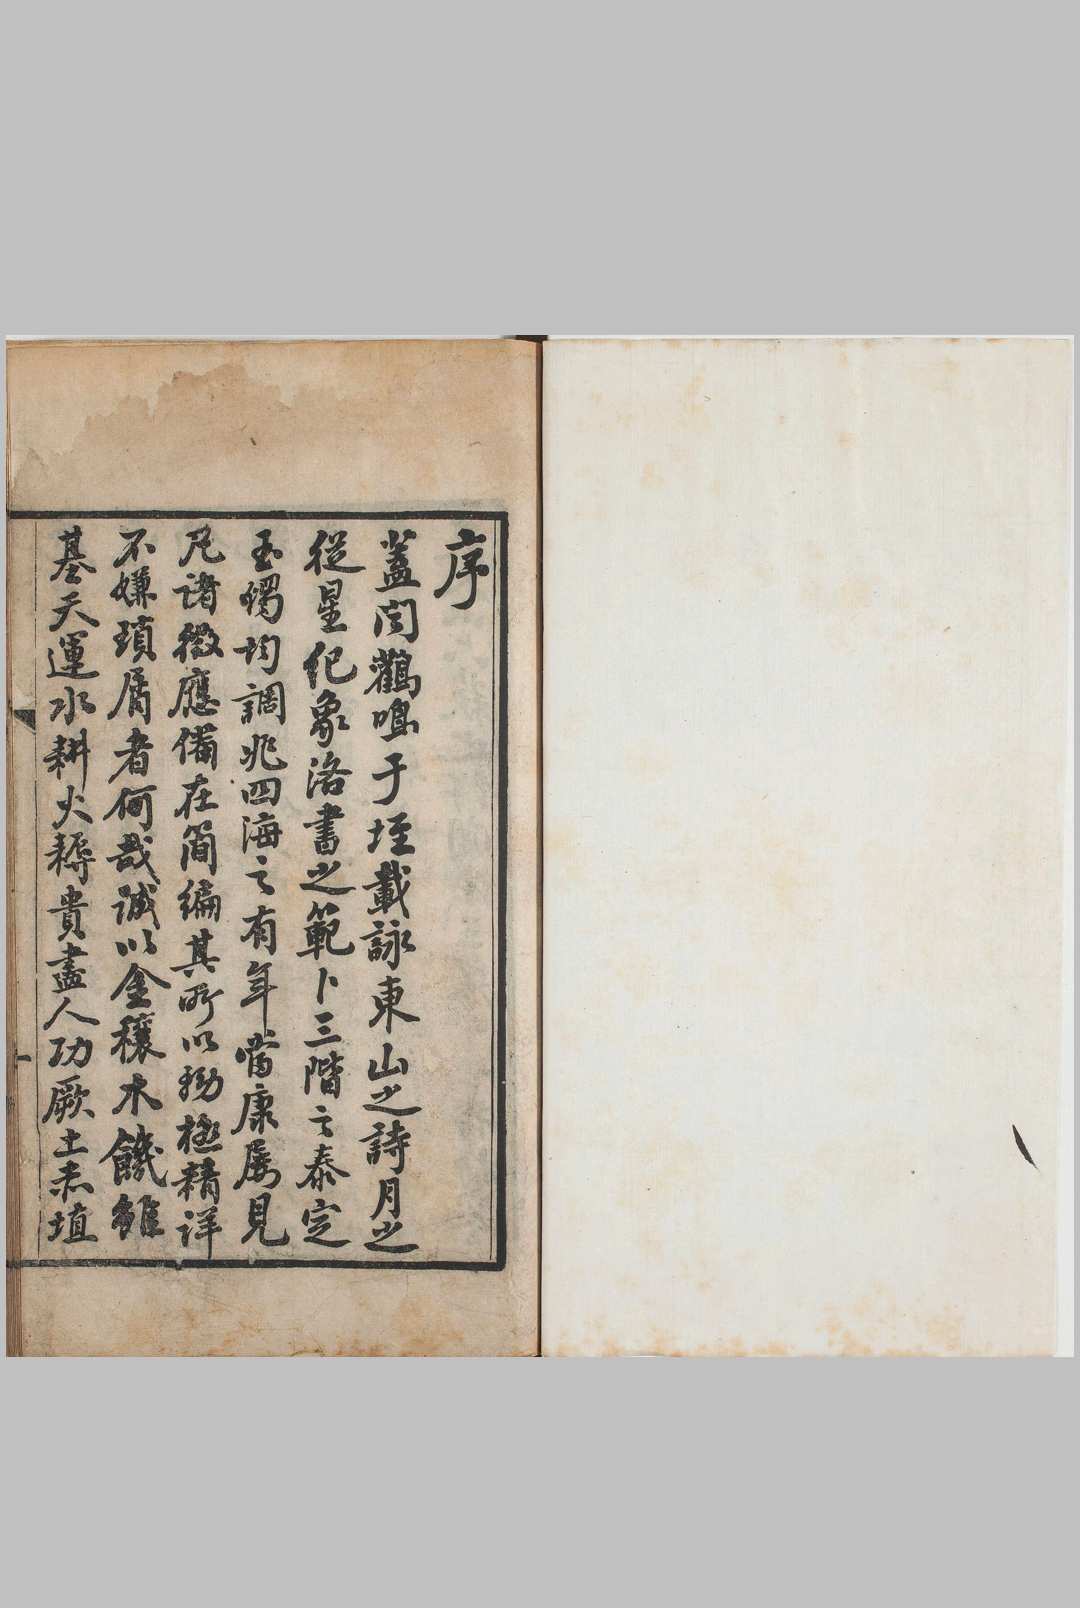 序
蓋聞鸛鳴于垤載詠東山之詩月之
從星紀象洛書之範卜三階之泰定
玉燭均調兆四海之有年嘗康屡見
凡諸徵應備在簡編其所以極精詳
不嫌瑣屑者何哉誠以金穰水饑雖
基天運水耕火耨貴盡人功厥土赤埴